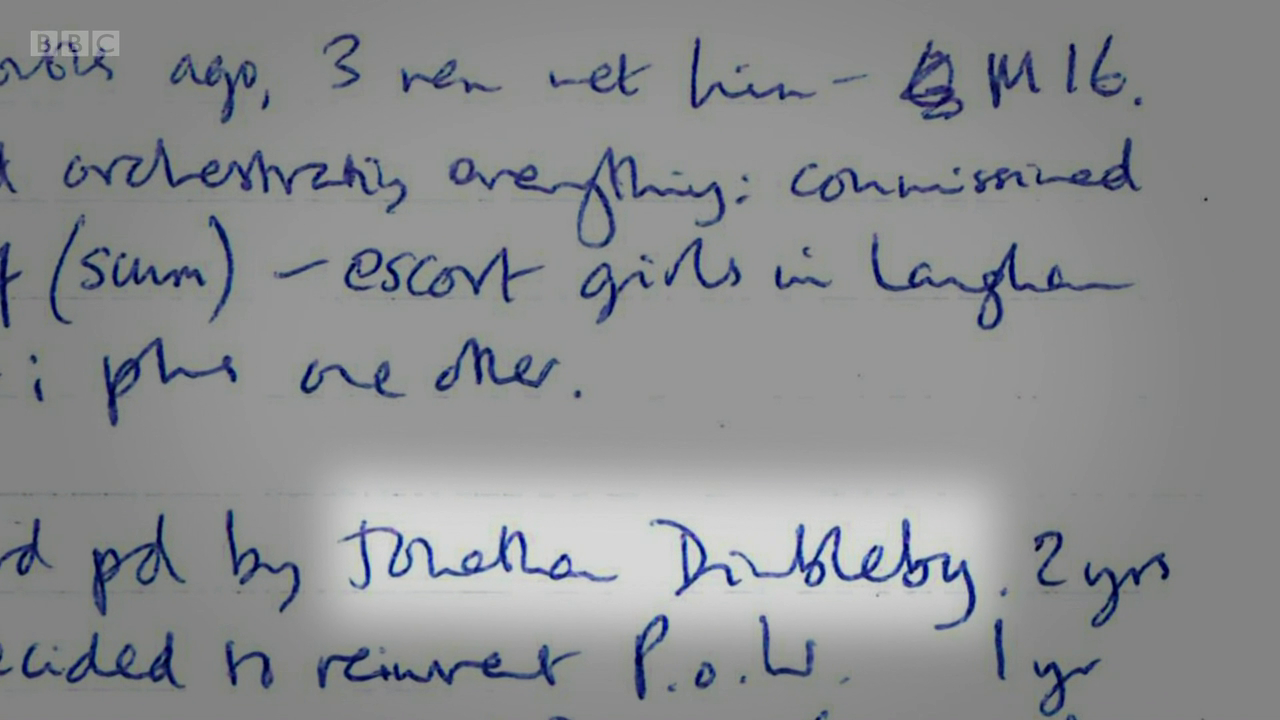 BBC
ago, 3 men met him - MI6.
orchestrating everything: commissioned
(scum) - escort girls in Langham
; plus one other.
pd by Jonathan Dimbleby. 2 yrs
decided to reinvent P.o.W. 1 yr